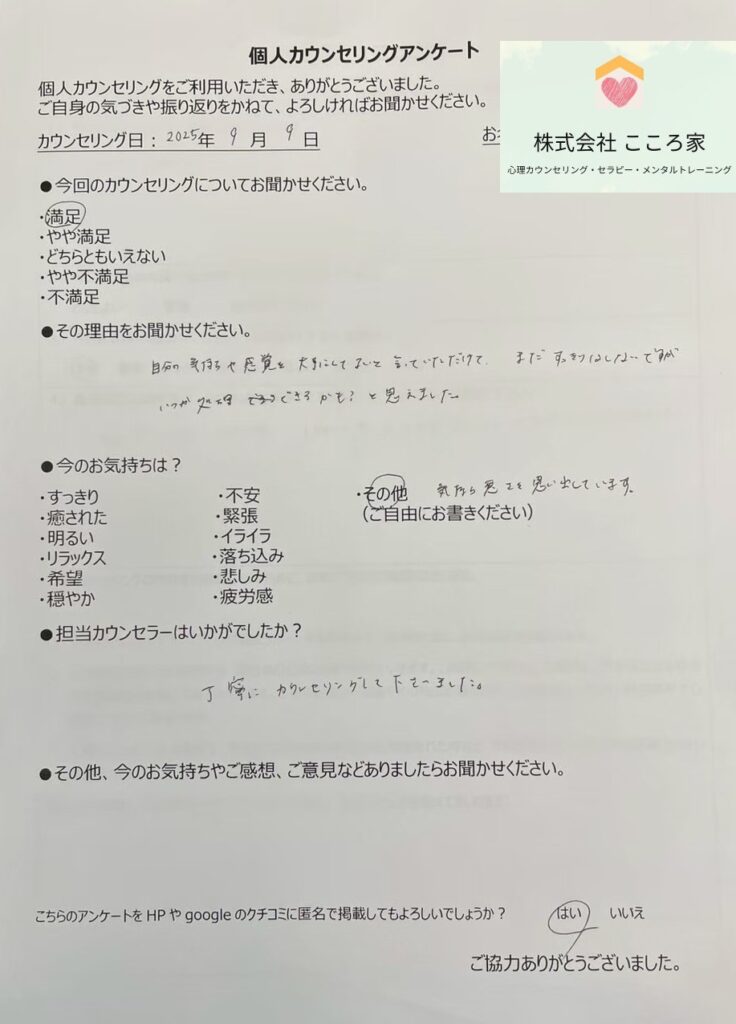 個人カウンセリングアンケート
個人カウンセリングをご利用いただき、ありがとうございました。
ご自身の気づきや振り返りをかねて、よろしければお聞かせください。
カウンセリング日：2025年 9 月 9 日 お
株式会社 こころ家
心理カウンセリング・セラピー・メンタルトレーニング
●今回のカウンセリングについてお聞かせください。
・満足
・やや満足
・どちらともいえない
・やや不満足
・不満足
●その理由をお聞かせください。
自分の気持ちや感覚を大事にしてよいと言っていただけて、まだすっきりはしないですが
いつか処理できるかも？と思えました。
●今のお気持ちは？
・すっきり ・不安 ・その他 気持ち悪さを思い出しています。
・癒された ・緊張 （ご自由にお書きください）
・明るい ・イライラ
・リラックス ・落ち込み
・希望 ・悲しみ
・穏やか ・疲労感
●担当カウンセラーはいかがでしたか？
丁寧にカウンセリングして下さいました。
●その他、今のお気持ちやご感想、ご意見などありましたらお聞かせください。
こちらのアンケートをHPやgoogleのクチコミに匿名で掲載してもよろしいでしょうか？ はい いいえ
ご協力ありがとうございました。